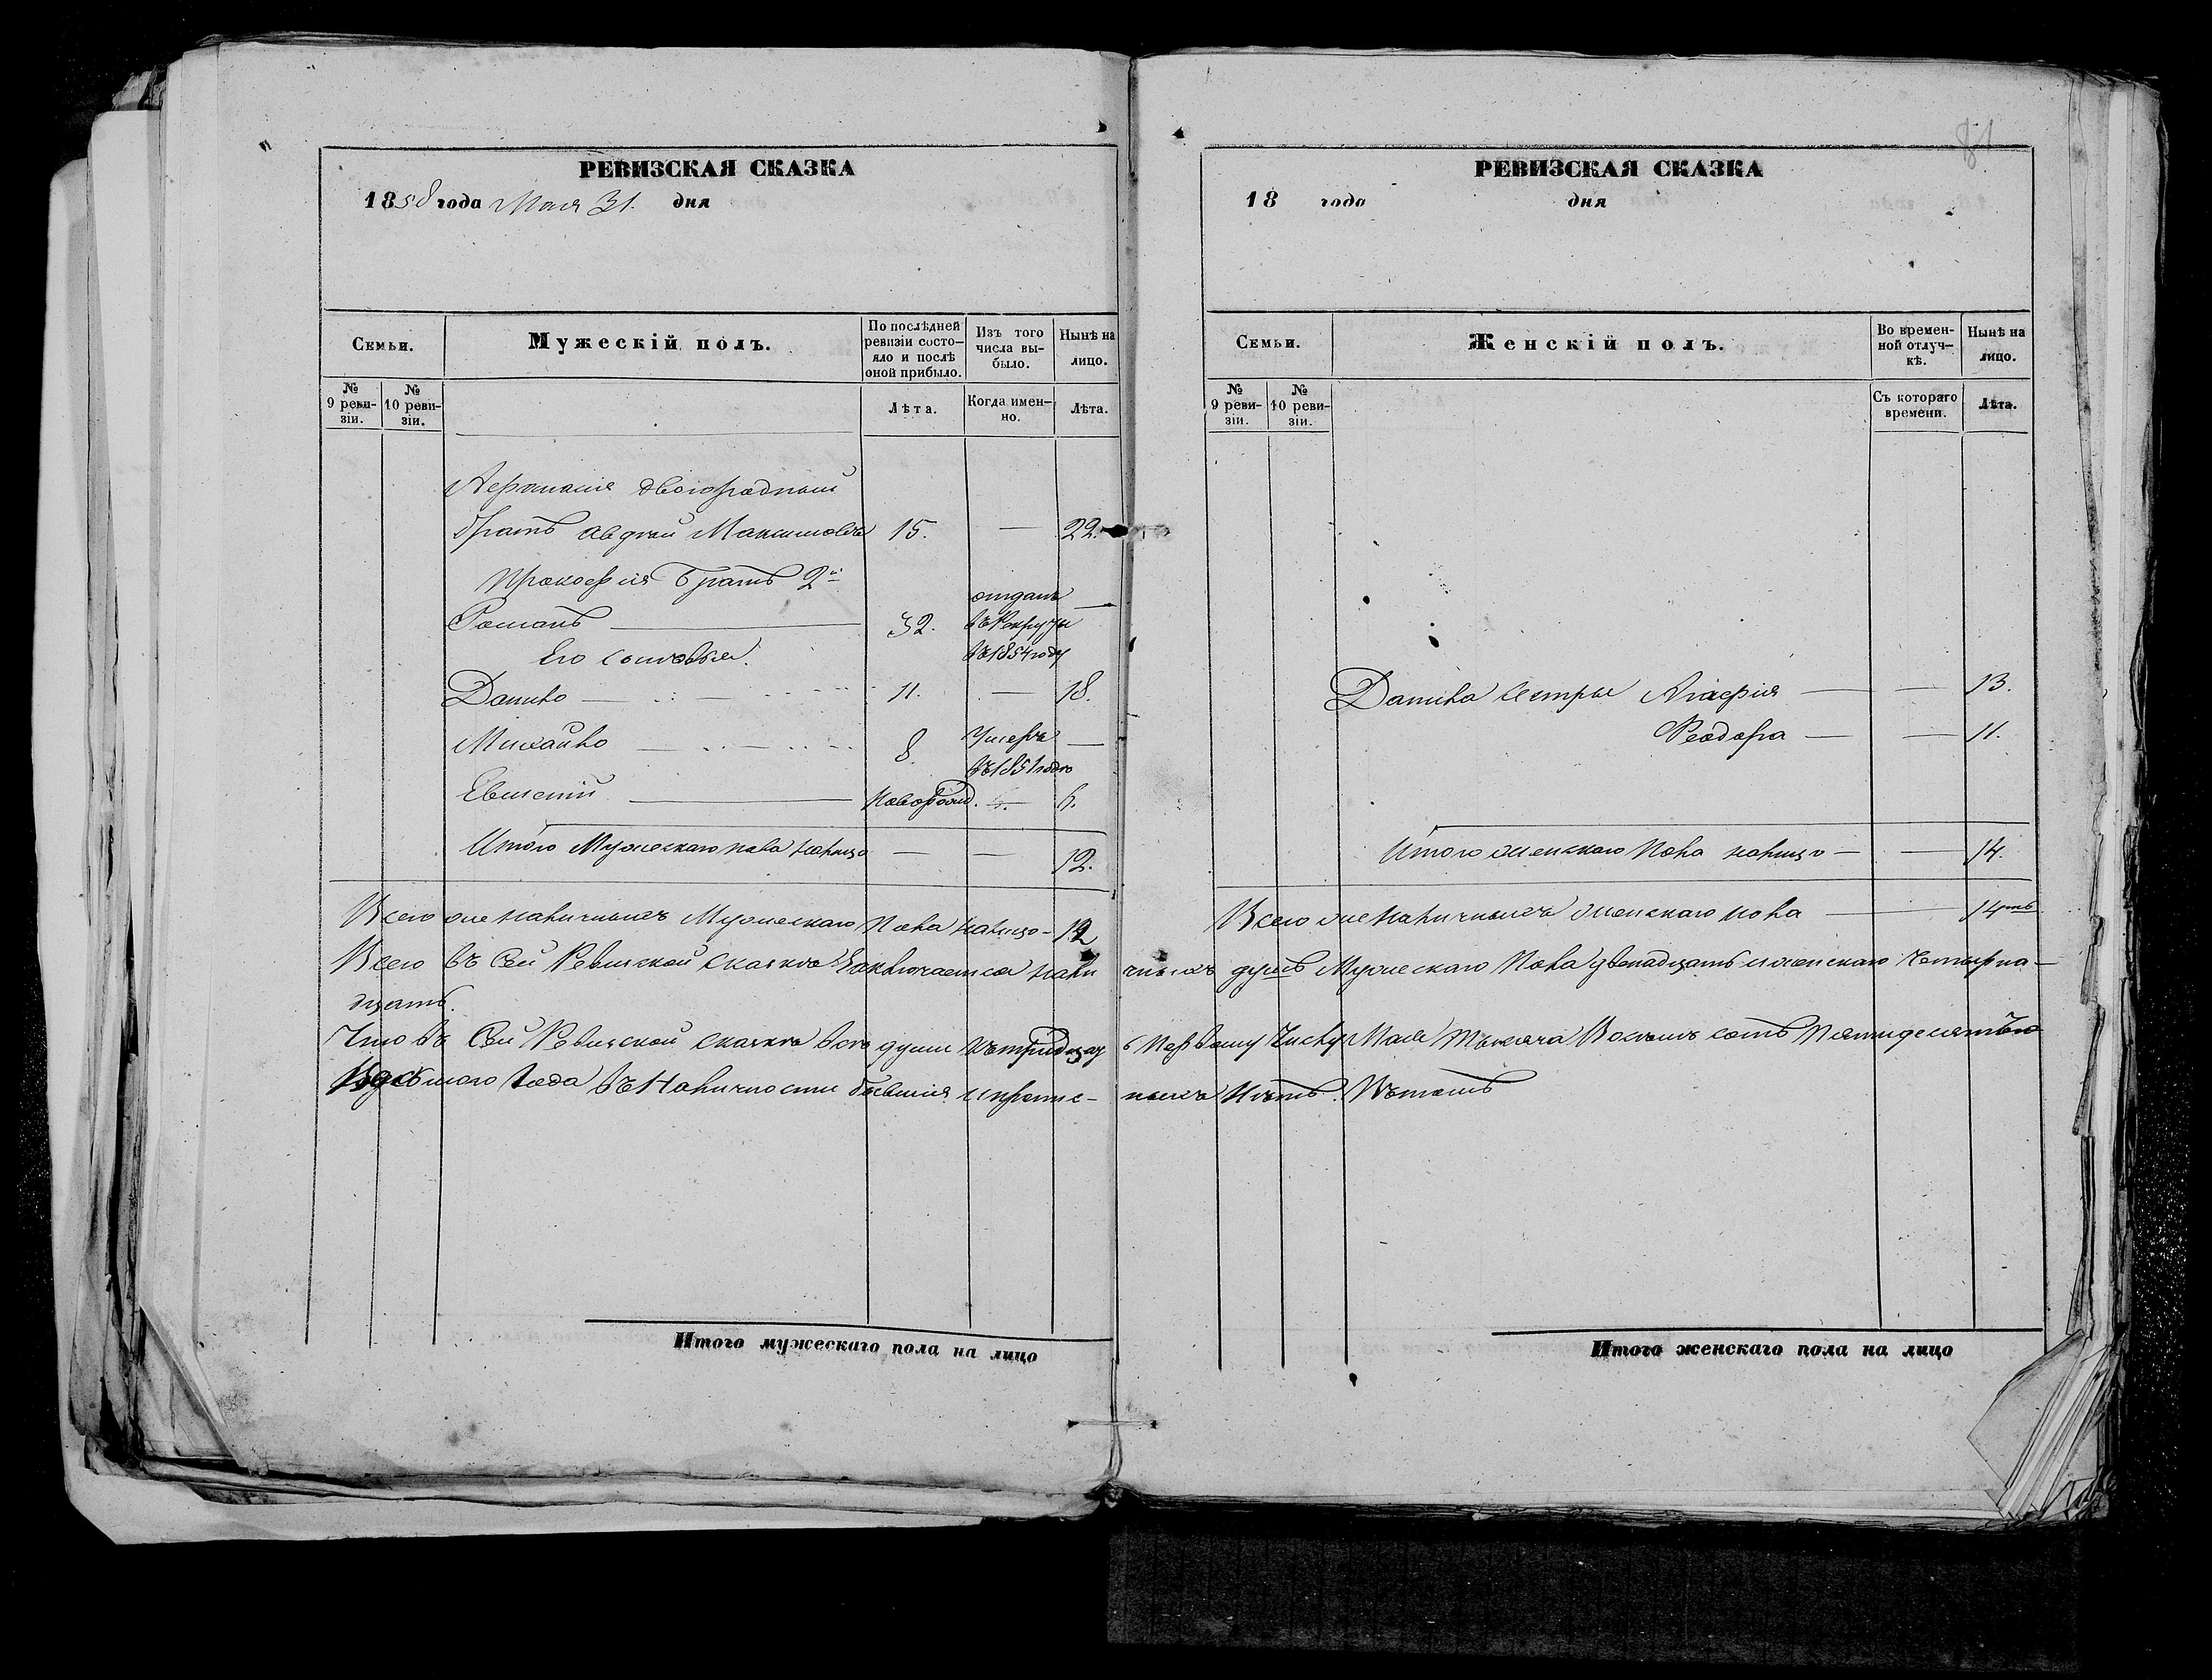 РЕВИЗСКАЯ СКАЗКА
1858 года Мая 31. дня
Семьи.
Мужескій полъ.
По послѣдней ревизіи состояло и послѣ оной прибыло.
Изъ того числа выбыло.
Нынѣ на лицо.
№ 9 ревизіи.
№ 10 ревизіи.
Лѣта.
Когда именно.
Лѣта.
двоюродный
братъ Авдѣй Максимовъ 15. — 22.
Прокофія братъ 2й
Романъ 32. отданъ въ Рекруты въ 1854 году —
Его сыновья.
Данило 11. — 18.
Михайло 8. Умеръ въ 1851 году —
Евменій новорожд. — 6.
Итого Мужескаго пола налицо — — 12.
Всего же наличныхъ Мужескаго Пола налицо — 12
81
РЕВИЗСКАЯ СКАЗКА
18 года дня
Семьи.
Женскій полъ.
Во временной отлучкѣ.
Нынѣ на лицо.
№ 9 ревизіи.
№ 10 ревизіи.
Съ котораго времени.
Лѣта.
Данила сестры Агафія — — 13.
Феодора — — 11.
Итого женскаго Пола налицо — — 14.
Всего же наличныхъ женскаго пола — 14ть
Всего въ сей Ревизской сказкѣ Заключается наличныхъ душъ Мужескаго Пола двенадцать и женскаго Четырна-
дцать.
Что въ Сей Ревизской сказкѣ всѣ души къ тридцать Первому Числу Мая Тысяча Восемь сотъ Пятидесятъ
года въ Наличности бывшія и нѣтъ. Въ томъ
Итого мужескаго пола на лицо
Итого женскаго пола на лицо